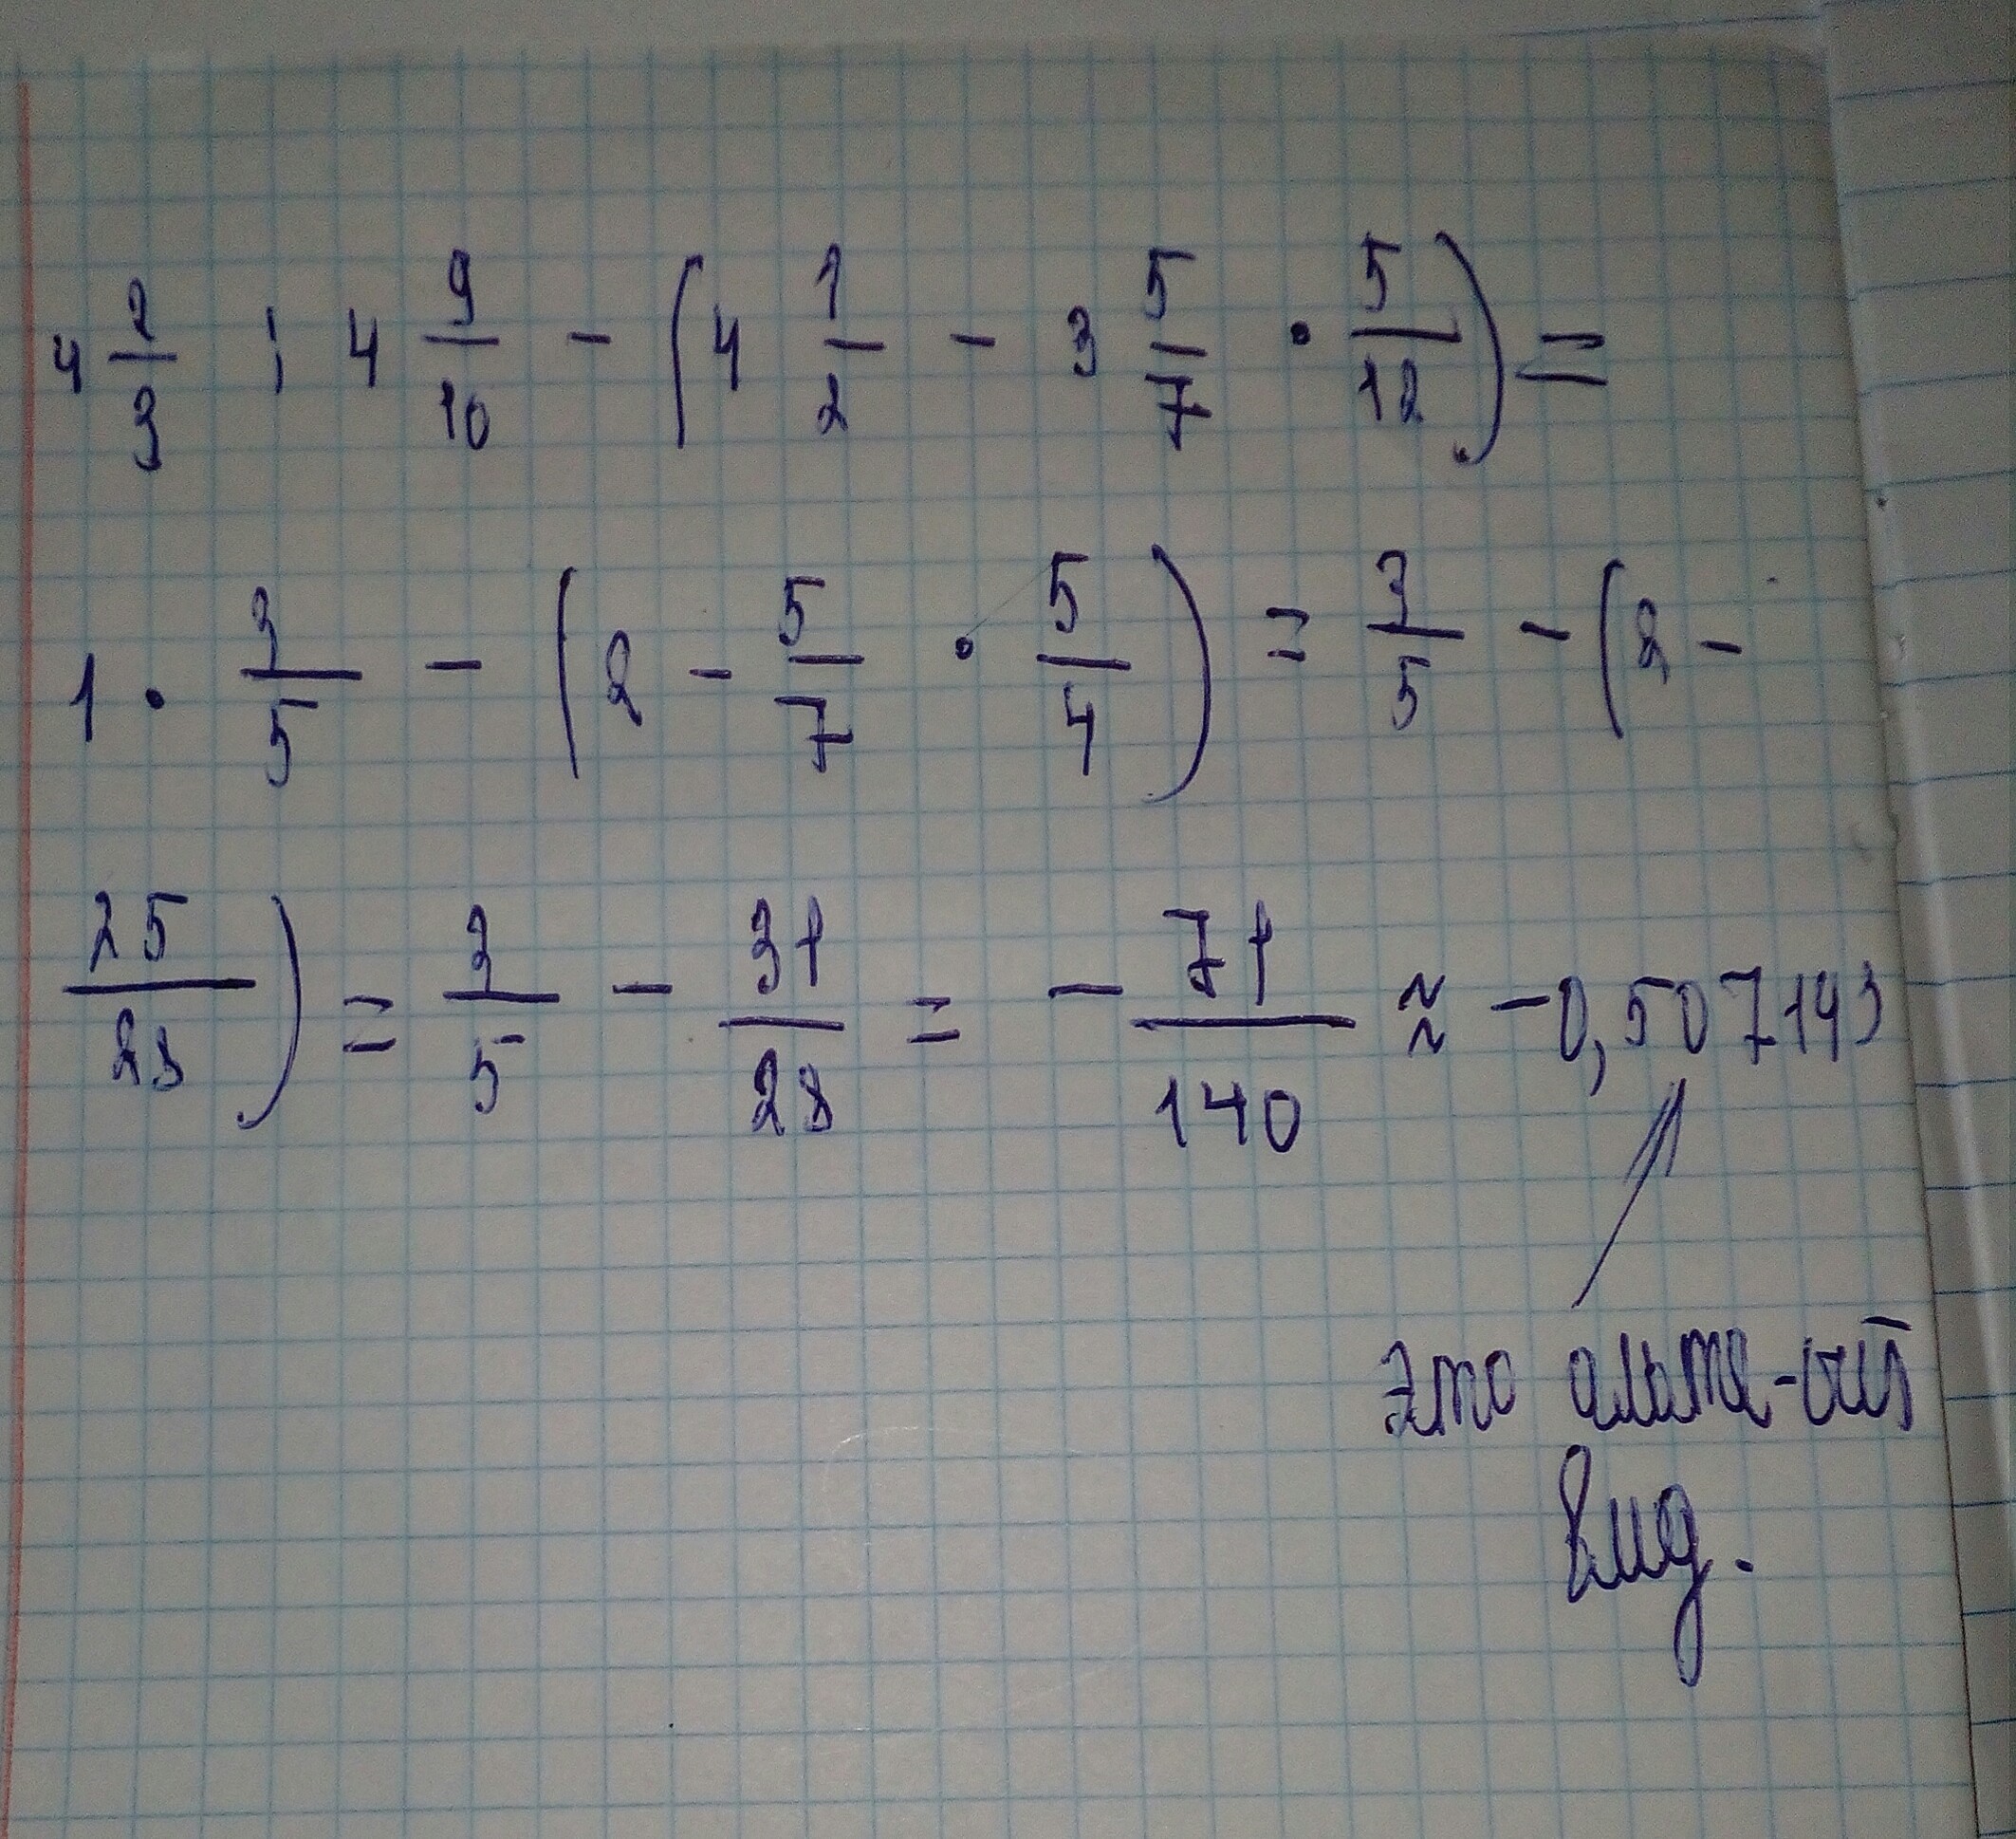 4 2/3 : 4 9/10 - (4 1/2 - 3 5/7 · 5/12) =
1 · 3/5 - (2 - 5/7 · 5/4) = 3/5 - (2 -
25/28) = 3/5 - 31/28 = - 71/140 ≈ -0,507143
это альте-ый
вид.